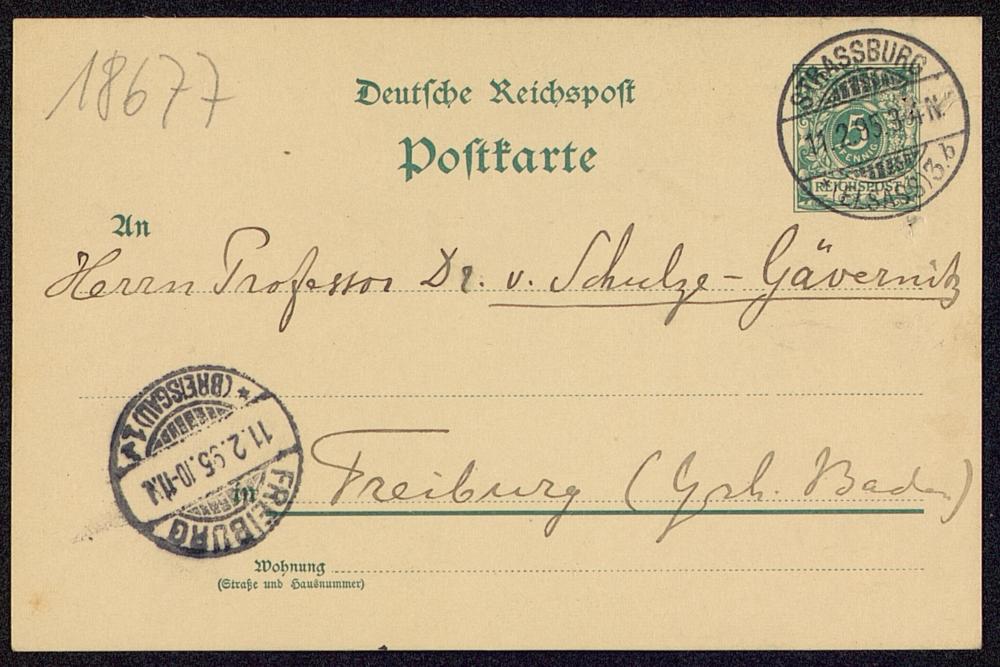 18677
Deutsche Reichspost
Postkarte
STRASSBURG
11.2.95.3-4N.
*(ELSASS)3.b
5
PFENNIG
REICHSPOST
An
Herrn Professor Dr. v. Schulze-Gävernitz
FREIBURG
11.2.95.10-11N.
*(BREISGAU)1*
in Freiburg (Grh. Baden)
Wohnung
(Straße und Hausnummer)